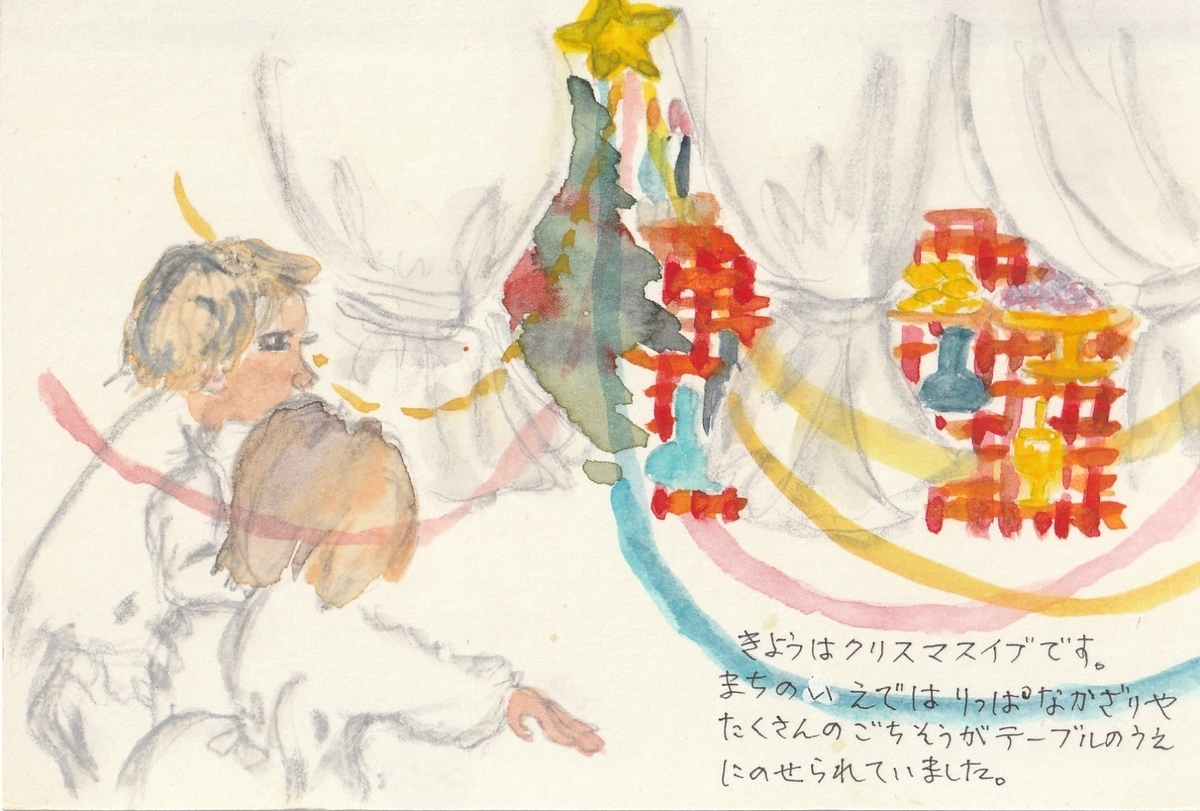 きょうはクリスマスイブです。
まちのいえではりっぱなかざりや
たくさんのごちそうがテーブルのうえ
にのせられていました。